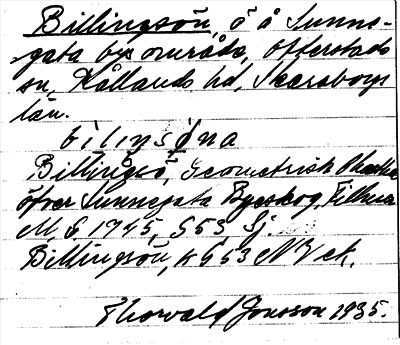 Billingsön, ö å Sunne-
gata by område, Otterstads
sn, Kållands hd, Skaraborgs
län.
bilinsöna
Billingsö, Geometrisk Charta
öfver Sunnegata Byeskog,
M. 1745, S53, Sj.
Billingsön, 53 NV ek.
Thorvald Jonsson 1935.